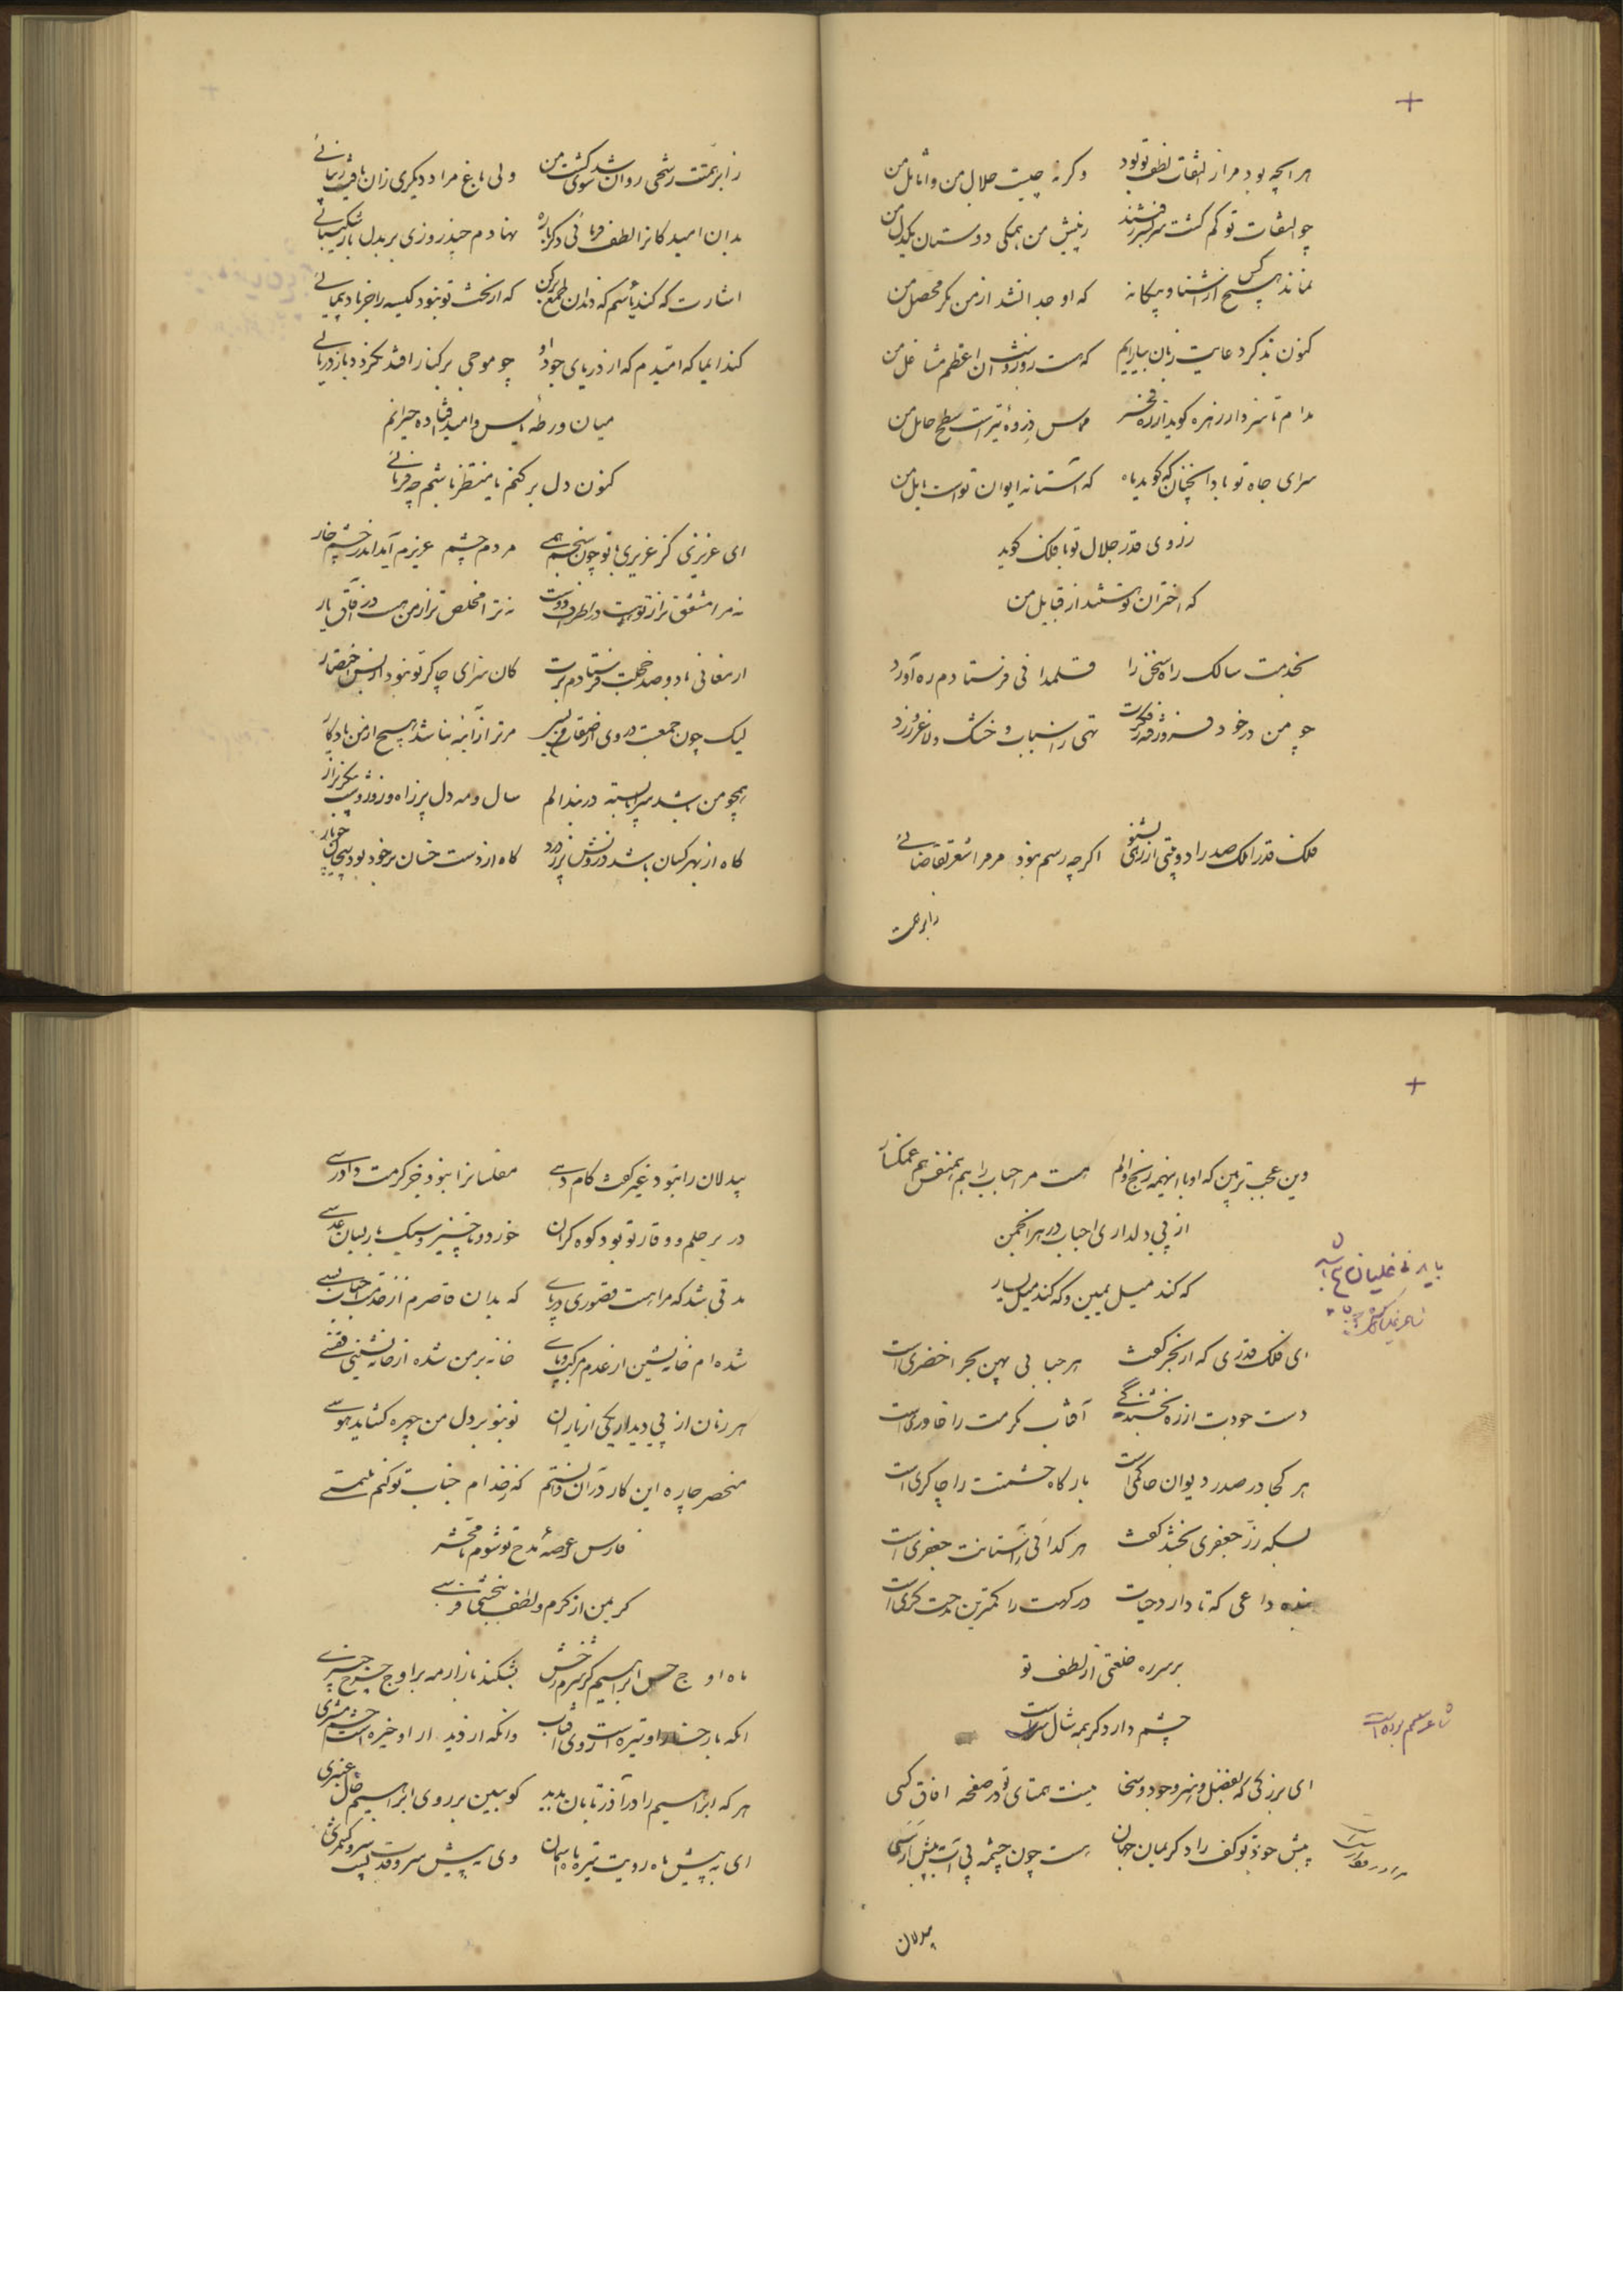 هرآنچه بود مرا از التفات لطف تو بود وکرنه چیست جلال من و اماثل من
چو التفات تو کم کشت سربسر رفتند ز پیش من همکی دوستان یکدل من
نماند هیچ کس از آشنا و بیکانه که او جدا نشد از من مکر محصل من
کنون بذکر دعایت زبان بیارایم که هست روز و شبان اعظم مشاغل من
مدام تا سزد ار زهره کوید از ره فخر مماس ذروهٔ تیر است سطح حامل من
سرای جاه تو بادا چنانکه کوید ماه که آستانه ایوان تو است مایل من
ز روی قدر جلال تو با فلک کوید
که اختران تو هستند از قبایل من
بخدمت سالک راه سخن را قلمدانی فرستادم ره آورد
چو من در خود تهی راسباب و خشک و لاغر و زرد
فلک قدرا ملک صدرا دو بیتی از رهی بشنو اکرچه رسم نبود مر مرا شعر تقاضائی
ز ابر همت
ز ابر همتت رشحی روان شد سوی کشت من ولی باغ مراد دیکری زان یافت زیبائی
بدان امید کانرا لطف فرمائی دکرباره نهادم چند روزی بر بدل بار شکیبائی
اشارت که کند یاسم که دندان طمع برکن که از بخت تو نبود کیسه را جز باد پیمائی
کند ایما که امیدم که از دریای جود او چو موجی برکنار افتد نکردد باز دریائی
میان ورطهٔ یاس و امید افتاده حیرانم
کنون دل برکنم یا منتظر باشم چه فرمائی
ای عزیزی کز عزیزی با تو چون سنجم همی مردم چشم عزیزم آید اندر چشم خار
نه مرا مشفق تر از تو هست در اطراف دوست نه ترا مخلص تر از من هست در آفاق یار
ارمغانی با دو صد خجلت فرستادم برت کان سزای چاکر تو نبود از بس اختصار
لیک چون جمعیت مر ترا زآینه نباشد هیچ از من یادکار
همچو من باشد سراپا بسته در بند الم سال و مه دل پر ز آه و روز و شب
کاه از بهر کسان باشد درونش پر ز درد کاه از دست خسان بر خود بود پیچان چو مار
وین عجب تر بین که او با اینهمه رنج و الم هست مر احباب را هم همنفس هم غمکسار
از پی دلداری احباب در هر انجمن
که کند میل یمین و که کند میل یسار
ای فلک قدری که از بحر کفت هر حبابی بهین بحر اخضری است
دست جودت از ره بخشندکی آفتاب مکرمت را خاوری است
هر کجا در صدر دیوان حاکمی است بارکاه حشمتت را چاکری است
بسکه زر جعفری بخشد کفت هر کدائی ز آستانت جعفری است
بنده داعی که تا دارد حیات درکهت را کمترین مدحت کری است
بر سر ره خلعتی از لطف تو
چشم دارد کر همه شال سر است
شاعر معمم بوده است
ای بزرکی که بفضل و هنر و جود و سخا نیست همتای تو در صفحه آفاق کسی
پیش جود تو کف راد کریمان جهان هست چون چشمه بی آب به پیش ارسی
بیدلان
بیدلان را نبود غیر کفت کام دهی مفلسانرا نبود جز کرمت دادرسی
در بر حلم و وقار تو بود کوه کران خورد و ناچیز و سبک بار بسان عدسی
مدتی شد که مرا هست قصوری در پای که بدان قاصرم از خدمت احباب بسی
شده ام خانه نشین از عدم مرکب و پای خانه بر من شده از خانه نشینی قفسی
هر زمان از پی دیدار یکی از یاران نو بنو بر دل من چهره کشاید هوسی
منحصر چاره این کار در آن دانستم که ز خدام جناب تو کنم ملتمسی
فارس عرصهٔ مدح تو شوم تا محشر
کر بمن از کرم و لطف ببخشی فرسی
ماه اوج حسن ابراهیم کز مهر رخش بشکند بازار مه بر اوج چرخ چنبری
آنکه با رخسار او تیره است روی آفتاب وانکه از دیدار او خیره است چشم مشتری
هر که ابراهیم را در آذر تابان بدید کو ببین بر روی ابراهیم خال عنبری
ای به پیش ماه رویت تیره ماه آسمان وی به پیش سرو قدت پست سرو کشمری